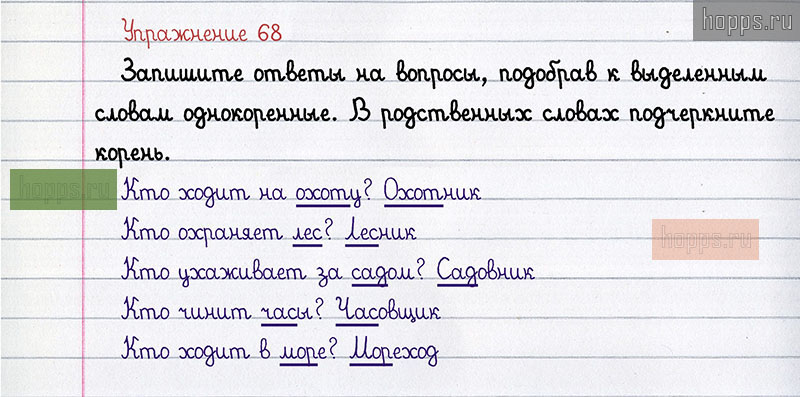 Упражнение 68
hopps.ru
Запишите ответы на вопросы, подобрав к выделенным
словам однокоренные. В родственных словах подчеркните
корень.
hopps.ru
Кто ходит на охоту? Охотник
Кто охраняет лес? Лесник
hopps.ru
Кто ухаживает за садом? Садовник
Кто чинит часы? Часовщик
Кто ходит в море? Мореход